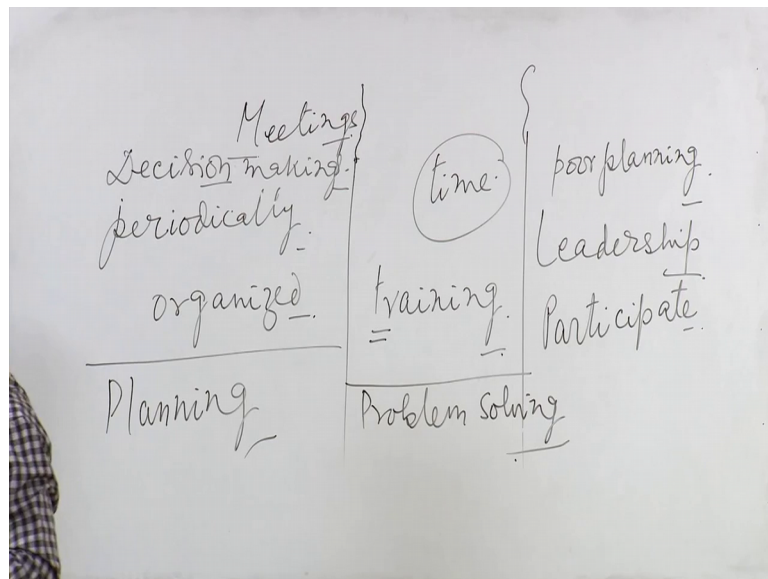 Meetings
Decision making.
periodically.
organized.
Planning
time.
training.
Problem Solving
poor planning.
Leadership
Participate